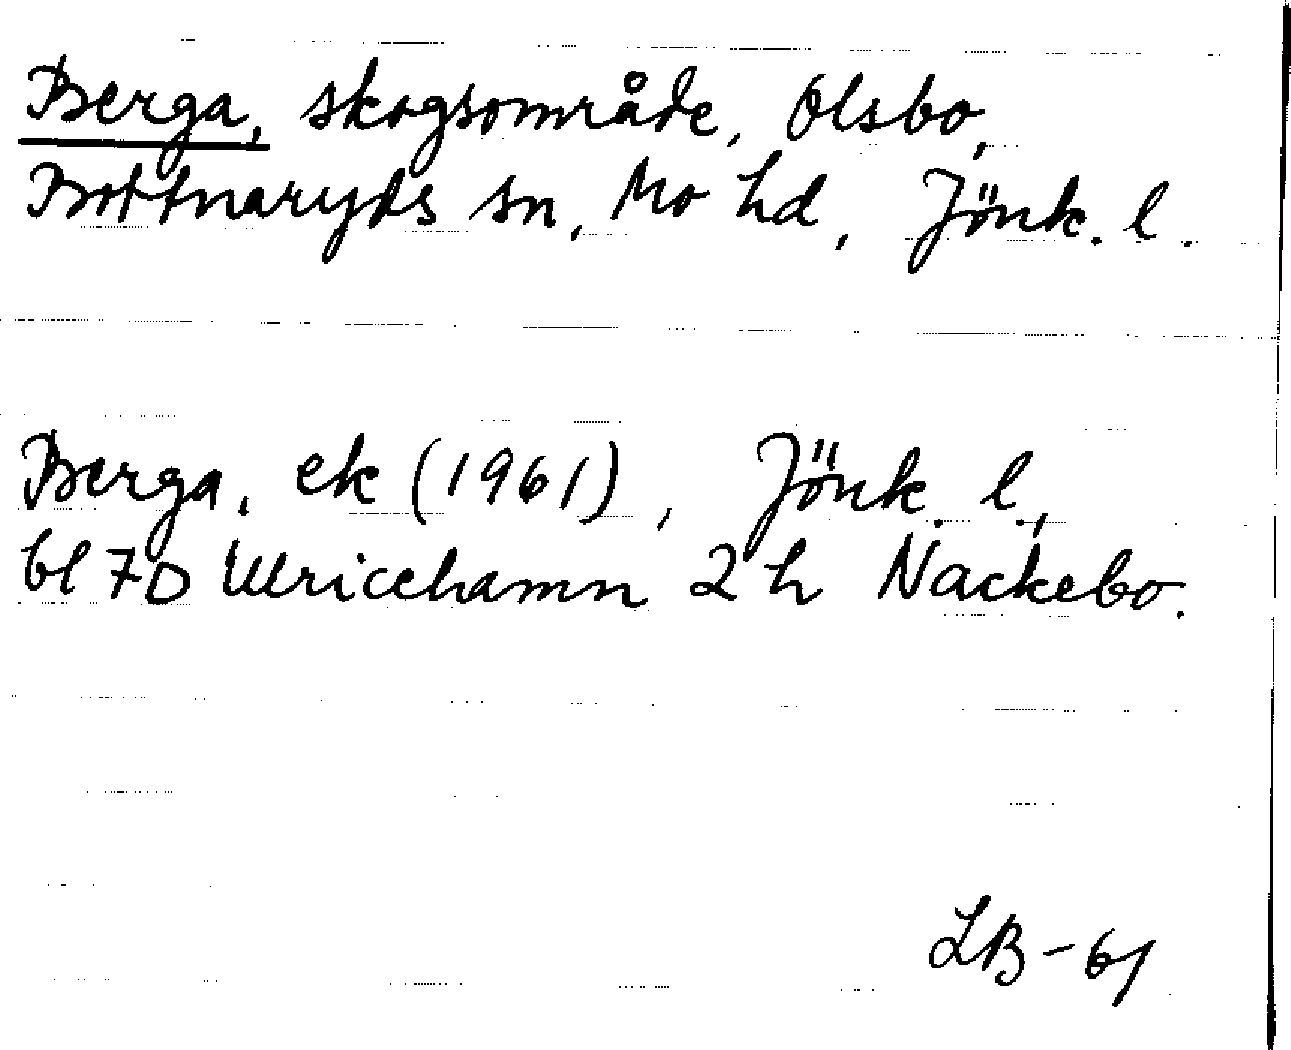 Berga, skogsområde, Olsbo,
Bottnaryds sn, Mo hd, Jönk. l.
Berga, ek (1961), Jönk. l.,
bl 7D Ulricehamn 2 h Nackebo.
LB-61